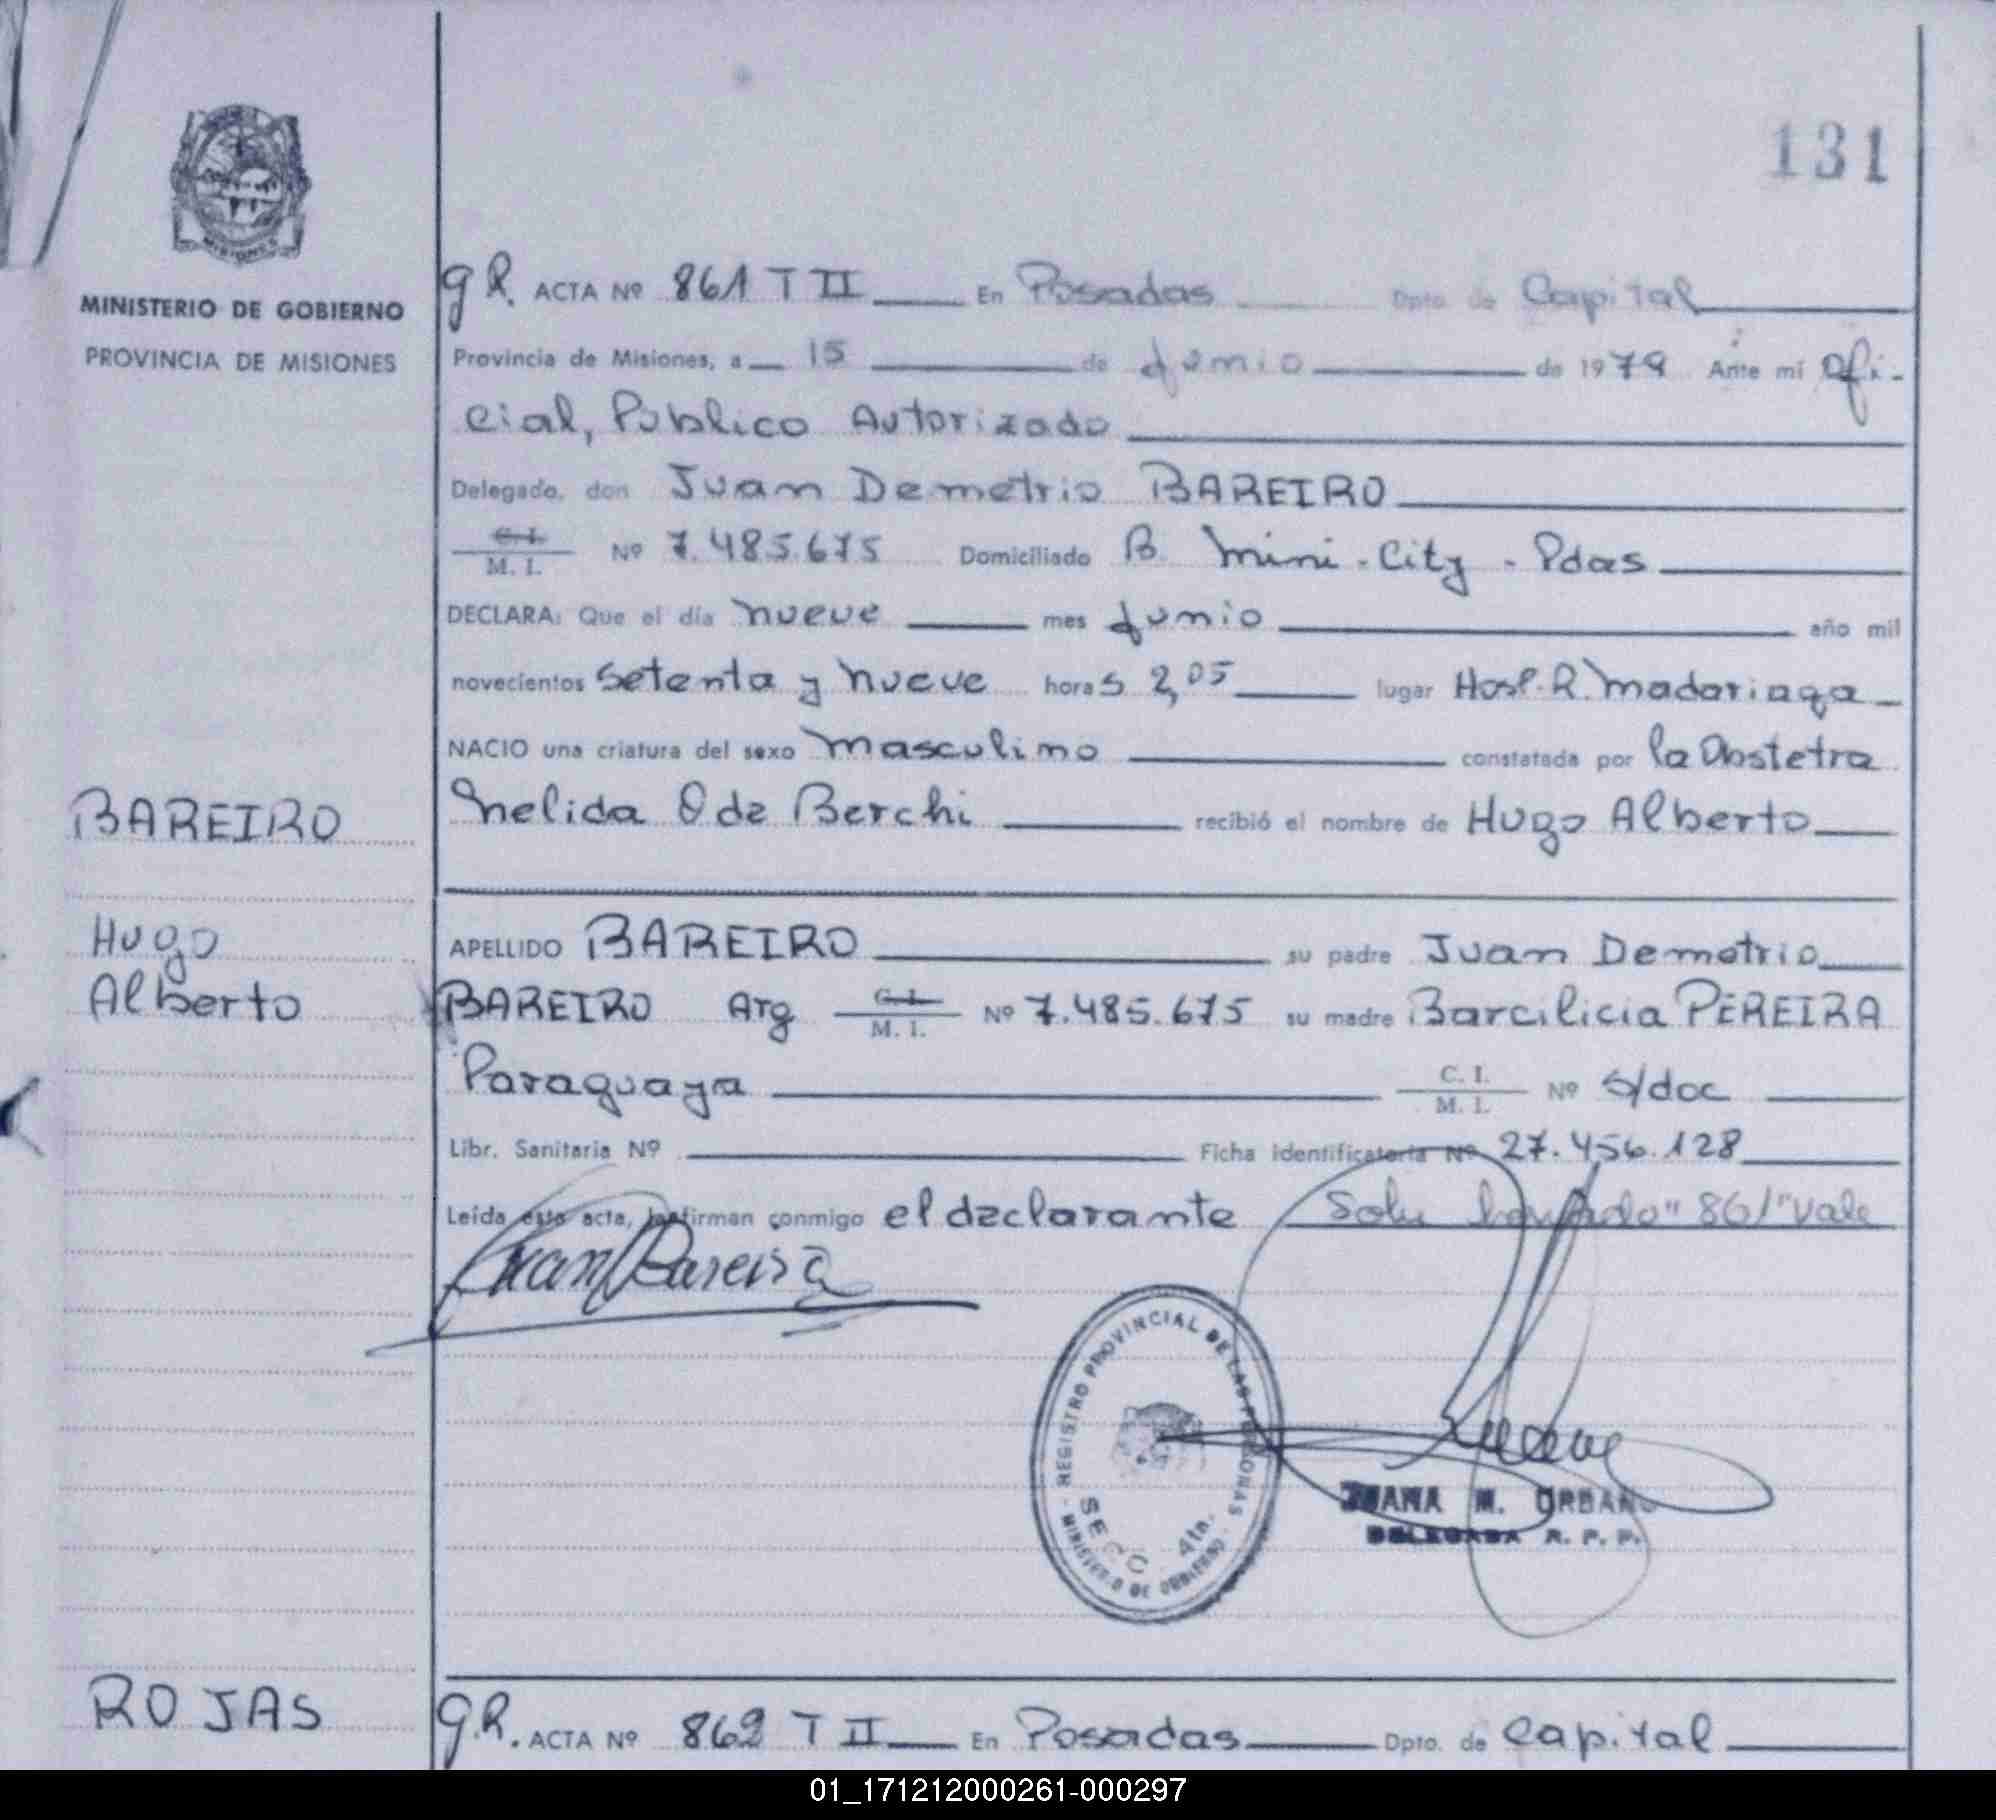 131
MISIONES
MINISTERIO DE GOBIERNO
PROVINCIA DE MISIONES
g R. ACTA Nº 861 T II En Posadas Dpto de Capital
Provincia de Misiones, a 15 de Junio de 1979 Ante mí Ofi-
cial, Publico Autorizado
Delegado, don Juan Demetrio BAREIRO
C. I.
M. I. Nº 7.485.675 Domiciliado B. Mini-City - Pdas
DECLARA: Que el día nueve mes Junio año mil
novecientos setenta y nueve horas 2,05 lugar Hosp. R. Madariaga
NACIO una criatura del sexo masculino constatada por la Obstetra
BAREIRO
Nelida O de Berchi recibió el nombre de Hugo Alberto
Hugo
Alberto
APELLIDO BAREIRO su padre Juan Demetrio
BAREIRO Arg C. I. M. I. Nº 7.485.675 su madre Barcilicia PEREIRA
Paraguaya C. I. M. I. Nº s/doc
Libr. Sanitaria Nº Ficha Identificatoria Nº 27.456.128
Leída esta acta, la firman conmigo el declarante Sobre borrado "861" Vale
Juan Bareiro
REGISTRO PROVINCIAL DE LAS PERSONAS
MINISTERIO DE GOBIERNO
SECC. 4ta.
JUANA M. URBANO
DELEGADA R. P. P.
ROJAS
g.R. ACTA Nº 862 T II En Posadas Dpto. de Capital
01_171212000261-000297